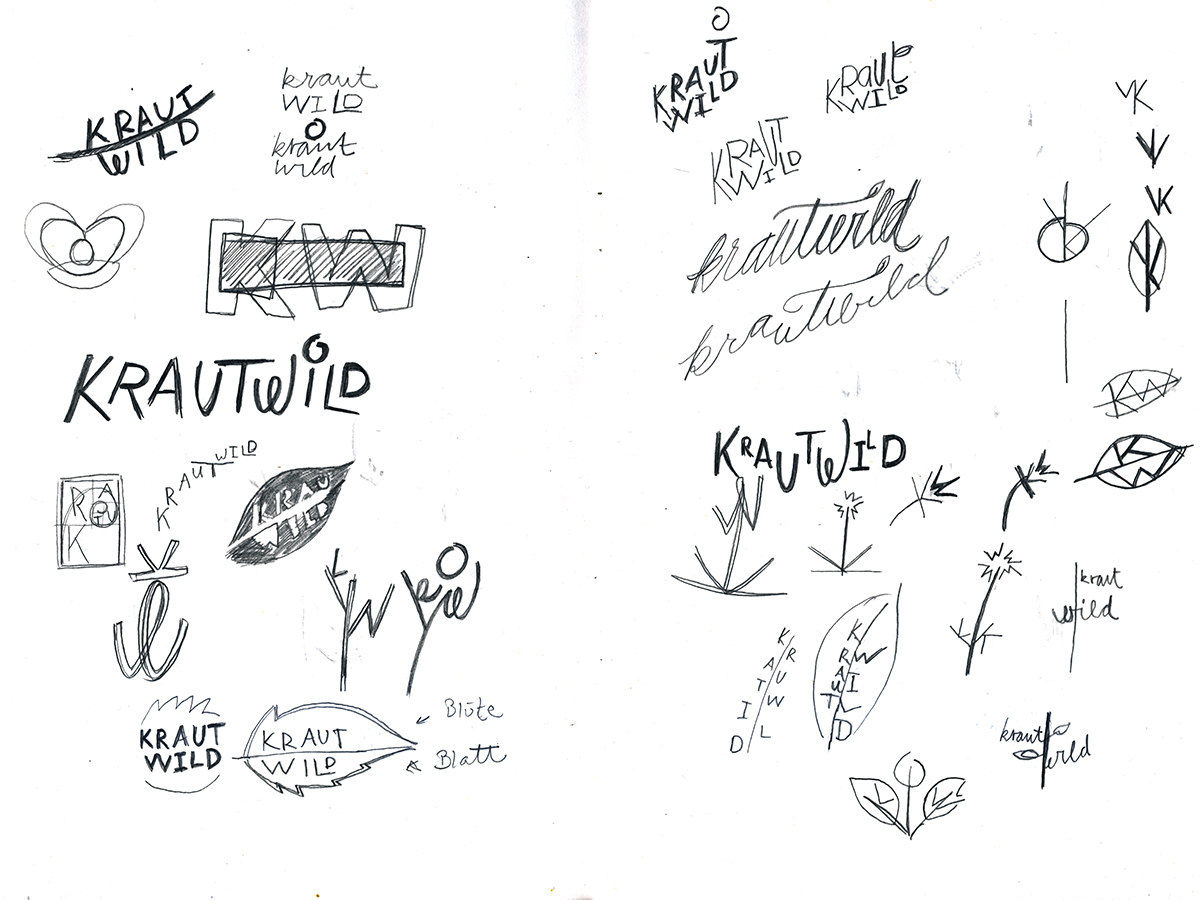 KRAUT
WILD
kraut
WILD
kraut
wild
KW
KRAUTWILD
KRAUTWILD
KRAU
WILD
K
W
KW
KRAUT
WILD
KRAUT
WILD
Blüte
Blatt
KRAUT
WILD
KRAUT
WILD
KRAUT
WILD
krautwild
krautwild
VK
VK
K
KW
KW
KRAUTWILD
kraut
wild
KRAUTWILD
KRAUT
WILD
kraut
wild